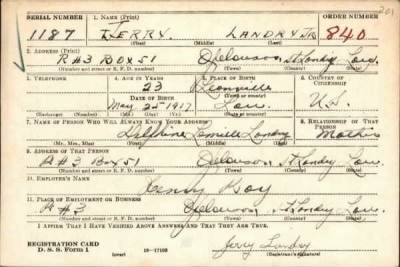 201
SERIAL NUMBER 1. NAME (Print) ORDER NUMBER
1187 JERRY. LANDRY JR 840
(First) (Middle) (Last)
2. ADDRESS (Print)
R#3 Box 51 Opelousas St Landry Lou.
(Number and street or R. F. D. number) (Town) (County) (State)
3. TELEPHONE 4. AGE IN YEARS 5. PLACE OF BIRTH 6. COUNTRY OF CITIZENSHIP
23 Leonville
DATE OF BIRTH (Town or county)
May 2nd 1917 Lou. U.S.
(Exchange) (Number) (Mo.) (Day) (Yr.) (State or country)
7. NAME OF PERSON WHO WILL ALWAYS KNOW YOUR ADDRESS 8. RELATIONSHIP OF THAT PERSON
Delphine Landry Mother
(Mr., Mrs., Miss) (First) (Middle) (Last)
9. ADDRESS OF THAT PERSON
R#3 Box 51 Opelousas St Landry Lou.
(Number and street or R. F. D. number) (Town) (County) (State)
10. EMPLOYER'S NAME
Henry
11. PLACE OF EMPLOYMENT OR BUSINESS
R#3 Opelousas St Landry Lou.
(Number and street or R. F. D. number) (Town) (County) (State)
I AFFIRM THAT I HAVE VERIFIED ABOVE ANSWERS AND THAT THEY ARE TRUE.
REGISTRATION CARD
D. S. S. Form 1 (over) Jerry Landry
(Registrant's signature)